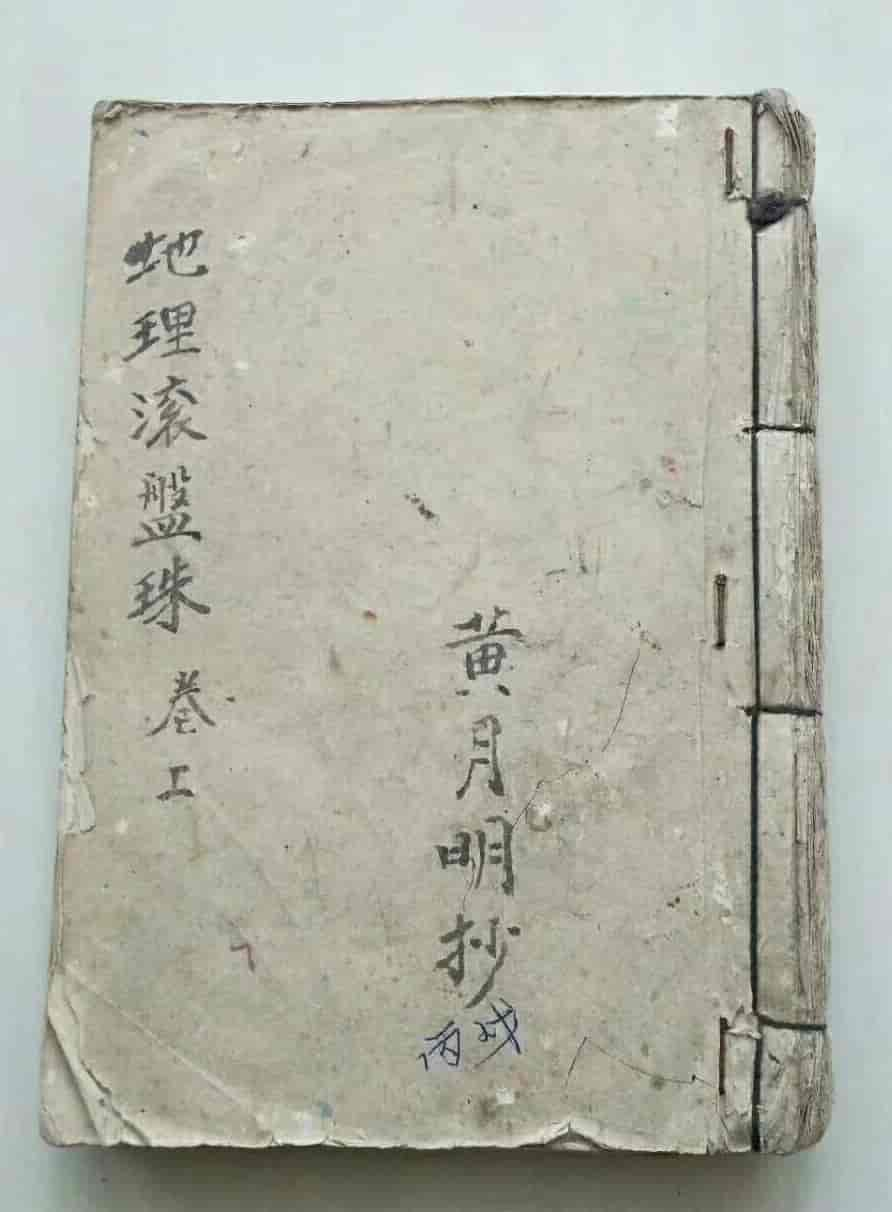 地理滚盤珠 卷上
黄月明抄
丙戌